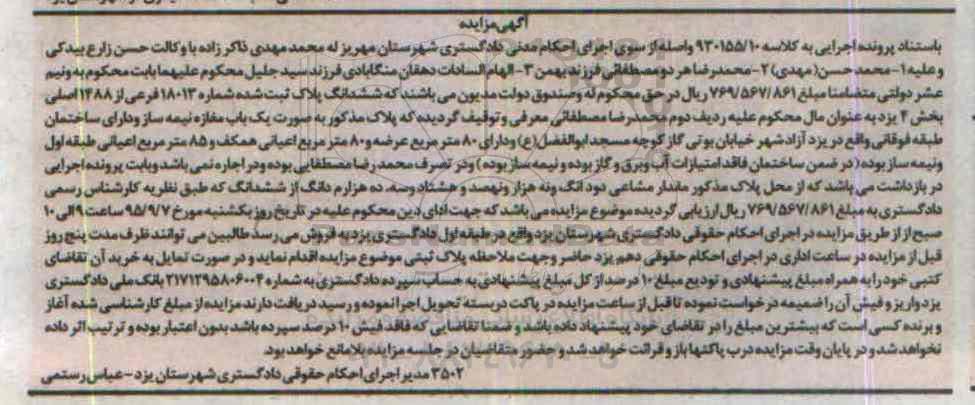 آگهی مزایده
باستناد پرونده اجرایی به کلاسه ۹۳۰۱۵۵/۱۰ واصله از سوی اجرای احکام مدنی دادگستری شهرستان مهریز له محمد مهدی ذاکر زاده با وکالت حسن زارع بیدکی
و علیه ۱- محمد حسن (مهدی) ۲- محمدرضا هر دو مصطفائی فرزند بهمن ۳- الهام السادات دهقان منگابادی فرزند سید جلیل محکوم علیهما بابت محکوم به و نیم
عشر دولتی متضامنا مبلغ ۷۶۹/۵۶۷/۸۶۱ ریال در حق محکوم له و صندوق دولت مدیون می باشند که ششدانگ پلاک ثبت شده شماره ۱۸۰۱۳ فرعی از ۱۴۸۸ اصلی
بخش ۴ یزد به عنوان مال محکوم علیه ردیف دوم محمدرضا مصطفائی معرفی و توقیف گردیده که پلاک مذکور به صورت یک باب مغازه نیمه ساز و دارای ساختمان
طبقه فوقانی واقع در یزد آزادشهر خیابان بوتی گاز کوچه مسجد ابوالفضل (ع) و دارای ۸۰ متر مربع عرصه و ۸۰ متر مربع اعیانی همکف و ۸۵ متر مربع اعیانی طبقه اول
و نیمه ساز بوده (در ضمن ساختمان فاقد امتیازات آب و برق و گاز بوده و نیمه ساز بوده) و در تصرف محمد رضا مصطفایی بوده و در اجاره نمی باشد و بابت پرونده اجرایی
در بازداشت می باشد که از محل پلاک مذکور مقدار مشاعی دو دانگ و نه هزار و نهصد و هشتاد و سه، ده هزارم دانگ از ششدانگ که طبق نظریه کارشناس رسمی
دادگستری به مبلغ ۷۶۹/۵۶۷/۸۶۱ ریال ارزیابی گردیده موضوع مزایده می باشد که جهت ادای دین محکوم علیه در تاریخ روز یکشنبه مورخ ۹۵/۹/۷ ساعت ۹ الی ۱۰
صبح از از طریق مزایده در اجرای احکام حقوقی دادگستری شهرستان یزد واقع در طبقه اول دادگستری یزد به فروش می رسد طالبین می توانند ظرف مدت پنج روز
قبل از مزایده در ساعت اداری در اجرای احکام حقوقی دهم یزد حاضر و جهت ملاحظه پلاک ثبتی موضوع مزایده اقدام نماید و در صورت تمایل به خرید آن تقاضای
کتبی خود را به همراه مبلغ پیشنهادی و تودیع مبلغ ۱۰ درصد از کل مبلغ پیشنهادی به حساب سپرده دادگستری به شماره ۲۱۷۱۲۹۵۸۰۶۰۰۴ بانک ملی دادگستری
یزد واریز و فیش آن را ضمیمه درخواست نموده تا قبل از ساعت مزایده در پاکت دربسته تحویل اجرا نموده و رسید دریافت دارند مزایده از مبلغ کارشناسی شده آغاز
و برنده کسی است که بیشترین مبلغ را در تقاضای خود پیشنهاد داده باشد و ضمنا تقاضایی که فاقد فیش ۱۰ درصد سپرده باشد بدون اعتبار بوده و ترتیب اثر داده
نخواهد شد و در پایان وقت مزایده درب پاکتها باز و قرائت خواهد شد و حضور متقاضیان در جلسه مزایده بلامانع خواهد بود.
۳۵۰۲ مدیر اجرای احکام حقوقی دادگستری شهرستان یزد - عباس رستمی